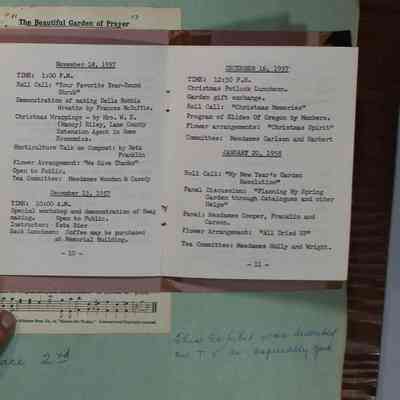 The Beautiful Garden of Prayer
November 18, 1957
TIME: 1:00 P.M.
Roll Call: "Your Favorite Year-Round
Shrub"
Demonstration of making Della Robbia
Wreaths by Frances McDuffle.
Christmas Wrappings - by Mrs. W. E.
(Nancy) Riley, Lane County
Extension Agent in Home
Economics.
Horticulture Talk on Compost: by Reta
Franklin
Flower Arrangement: "We Give Thanks"
Open to Public.
Tea Committee: Mesdames Wooden & Canody
December 13, 1957
TIME: 10:00 A.M.
Special workshop and demonstration of Swag
making. Open to Public.
Instructor: Esta Eder
Sack Luncheon: Coffee may be purchased
at Memorial Building.
- 10 -
DECEMBER 16, 1957
TIME: 12:30 P.M.
Christmas Potluck Luncheon.
Garden gift exchange.
Roll Call: "Christmas Memories"
Program of Slides Of Oregon by Members.
Flower arrangements: "Christmas Spirit"
Committee: Mesdames Carlson and Harbert
JANUARY 20, 1958
Roll Call: "My New Year's Garden
Resolution"
Panel Discussion: "Planning My Spring
Garden through Catalogues and other
Helps"
Panel: Mesdames Cooper, Franklin and
Carson.
Flower Arrangement: "All Dried UP"
Tea Committee: Mesdames Holly and Wright.
- 11 -
This Exhibit was
on T V as especially good
ace 2nd